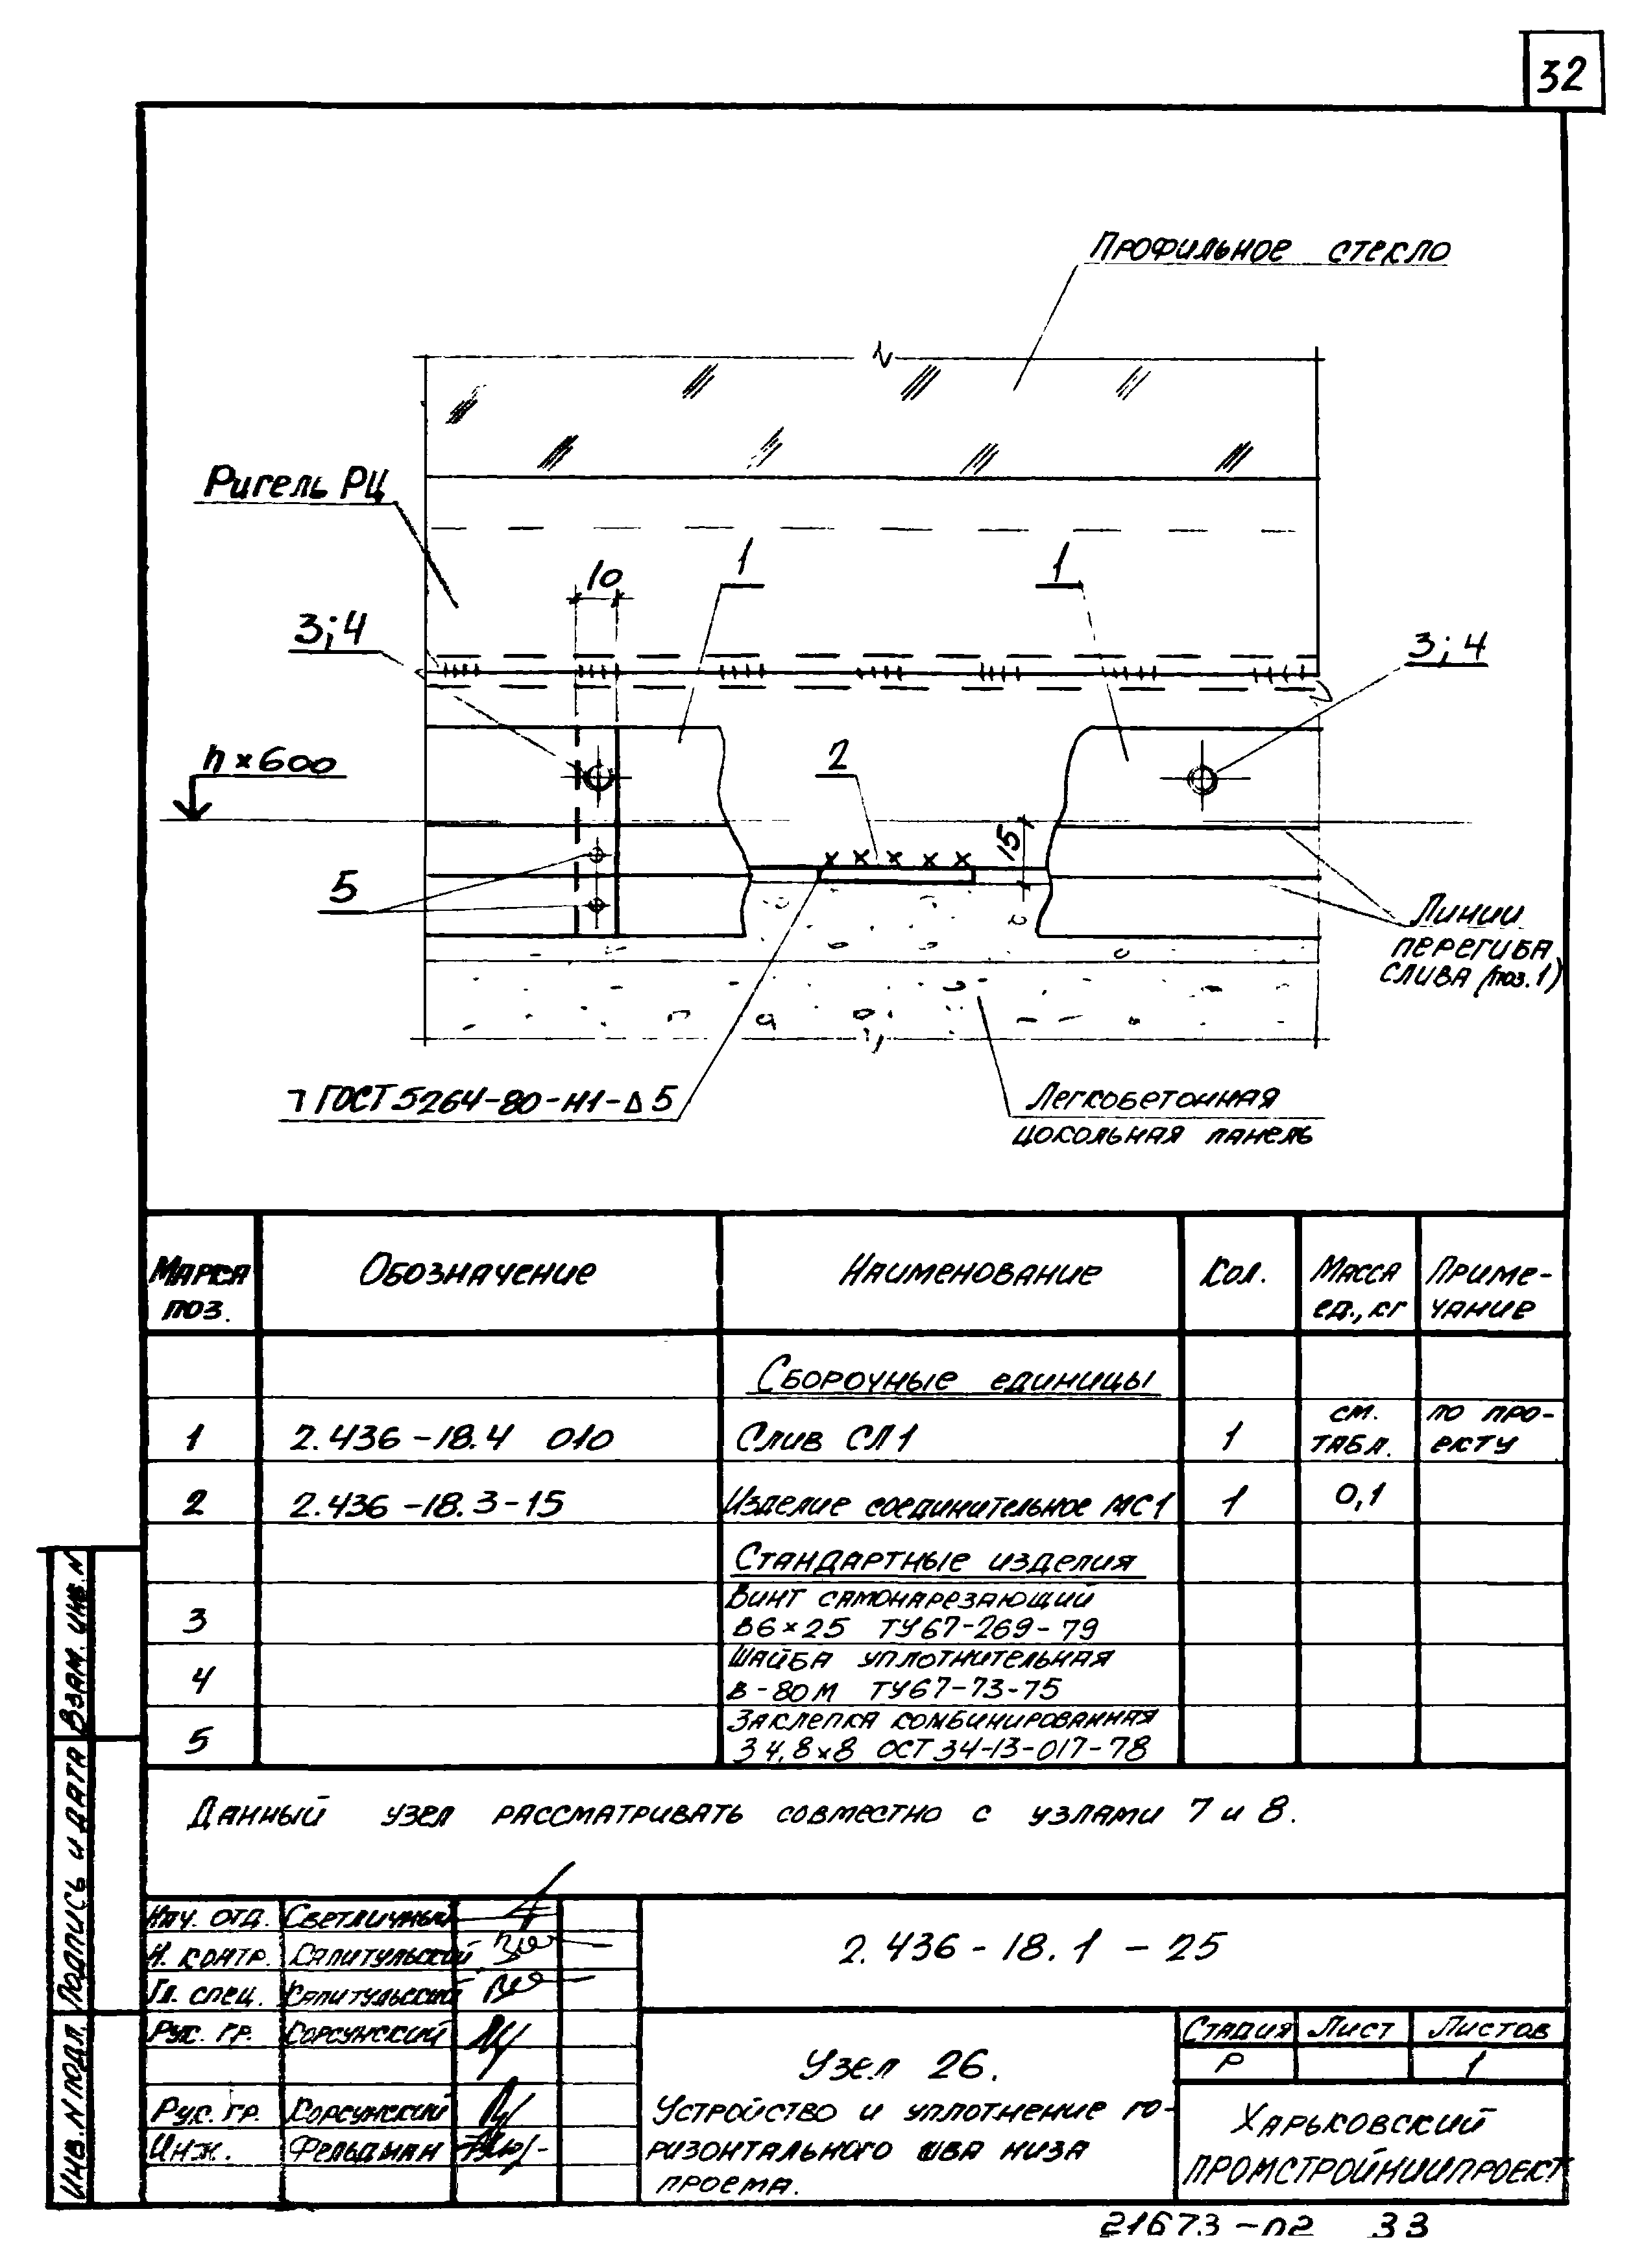 32
Профильное стекло
Ригель РЦ
10
1
1
3; 4
3; 4
n×600
2
15
5
Линии
перегиба
слива (поз. 1)
ГОСТ 5264-80-Н1-Δ5
Легкобетонная
цокольная панель
Марка поз. Обозначение Наименование Кол. Масса ед., кг Приме-чание
Сборочные единицы
1 2.436-18.4 010 Слив СЛ1 1 см. табл. по про-екту
2 2.436-18.3-15 Изделие соединительное МС1 1 0,1
Стандартные изделия
3 Винт самонарезающий
В6×25 ТУ67-269-79
4 Шайба уплотнительная
В-80М ТУ67-73-75
5 Заклепка комбинированная
ЗК 4,8×8 ОСТ 34-13-017-78
Данный узел рассматривать совместно с узлами 7 и 8.
Взам. инв. N
Подпись и дата
Инв. N подл.
Нач. отд. Светличный
Н. контр. Сапитульский
Гл. спец. Сапитульский
Рук. гр. Корсунский
Рук. гр. Корсунский
Инж. Фельдман
2.436-18.1-25
Узел 26.
Устройство и уплотнение го-
ризонтального шва низа
проема.
Стадия Лист Листов
Р 1
Харьковский
ПРОМСТРОЙНИИПРОЕКТ
21673-02 33